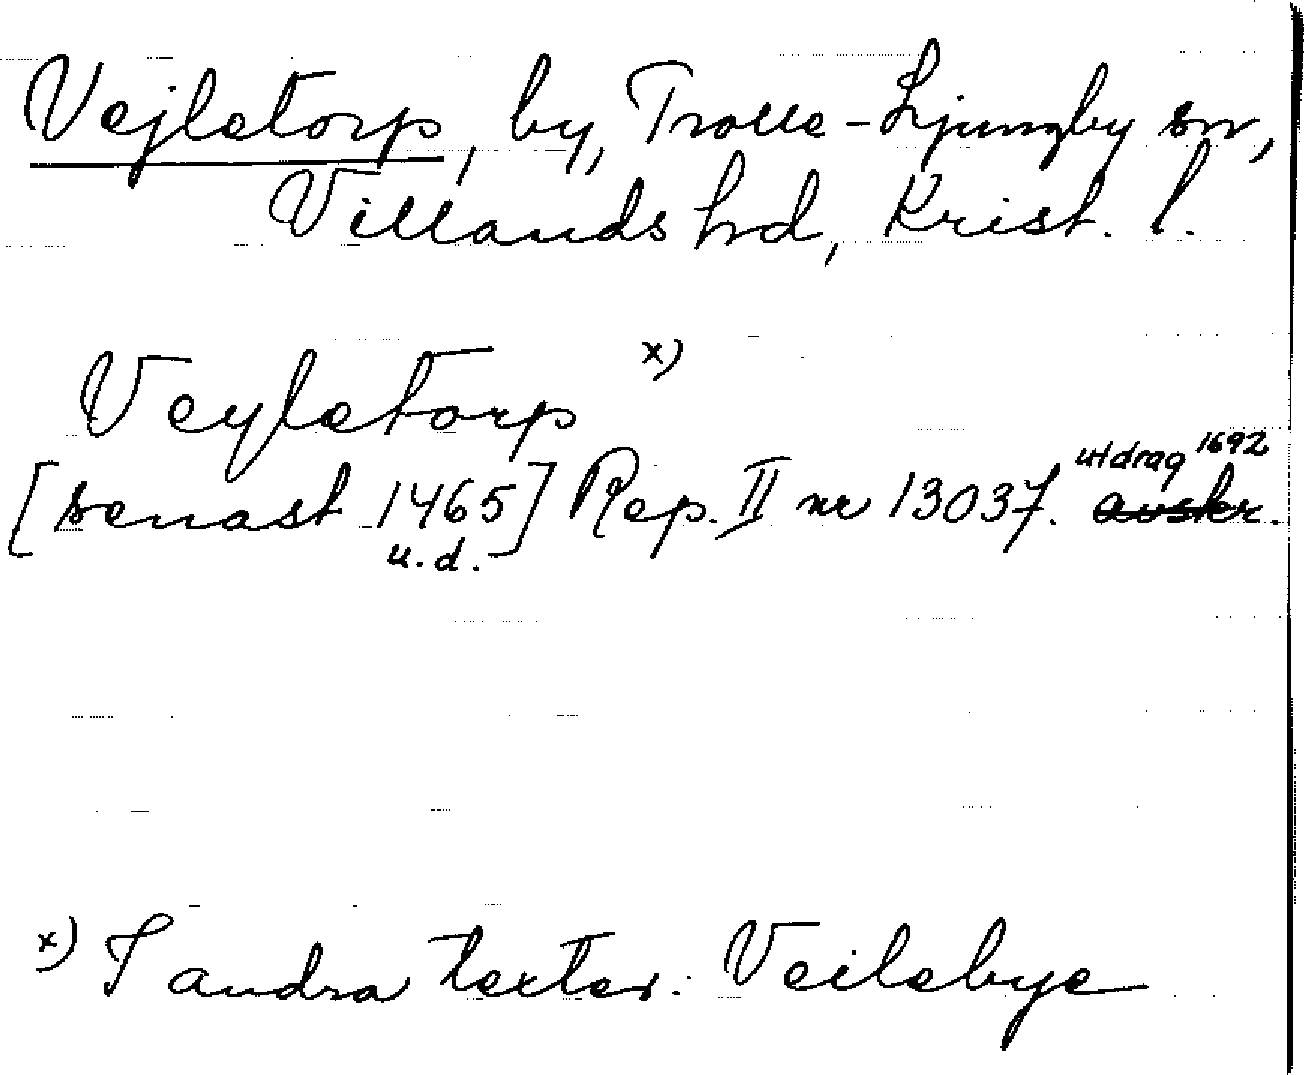 Vejletorp, by, Trolle-Ljungby sn,
Villands hd, Krist. l.
Veyletorp x)
utdrag 1692
[senast 1465] Rep. II nr 13037. avskr.
u.d.
x) I andra texter: Veilebye